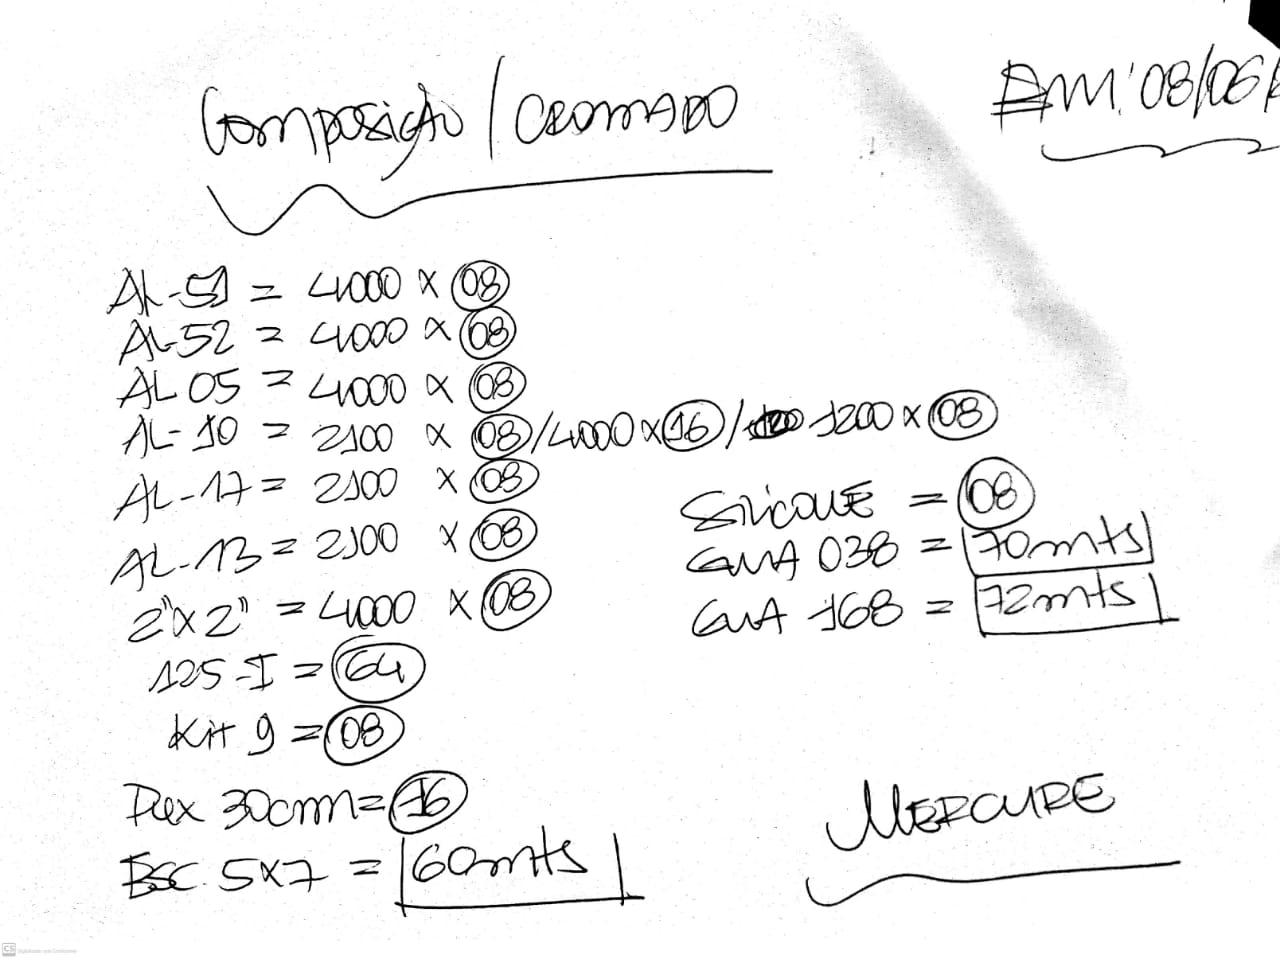 Composição / CROMADO
EM: 08/06/
AL-51 = 4000 x 08
AL-52 = 4000 x 08
AL 05 = 4000 x 08
AL-10 = 2100 x 08 / 4000 x 16 / 1200 x 08
AL-17 = 2100 x 08
AL-13 = 2100 x 08
2"x2" = 4000 x 08
125-I = 64
Kit 9 = 08
Pux 30cm = 16
BSC. 5x7 = 60mts
SILICONE = 08
GUA 038 = 70mts
GUA 168 = 72mts
MERCURE
CS Digitalizado com CamScanner